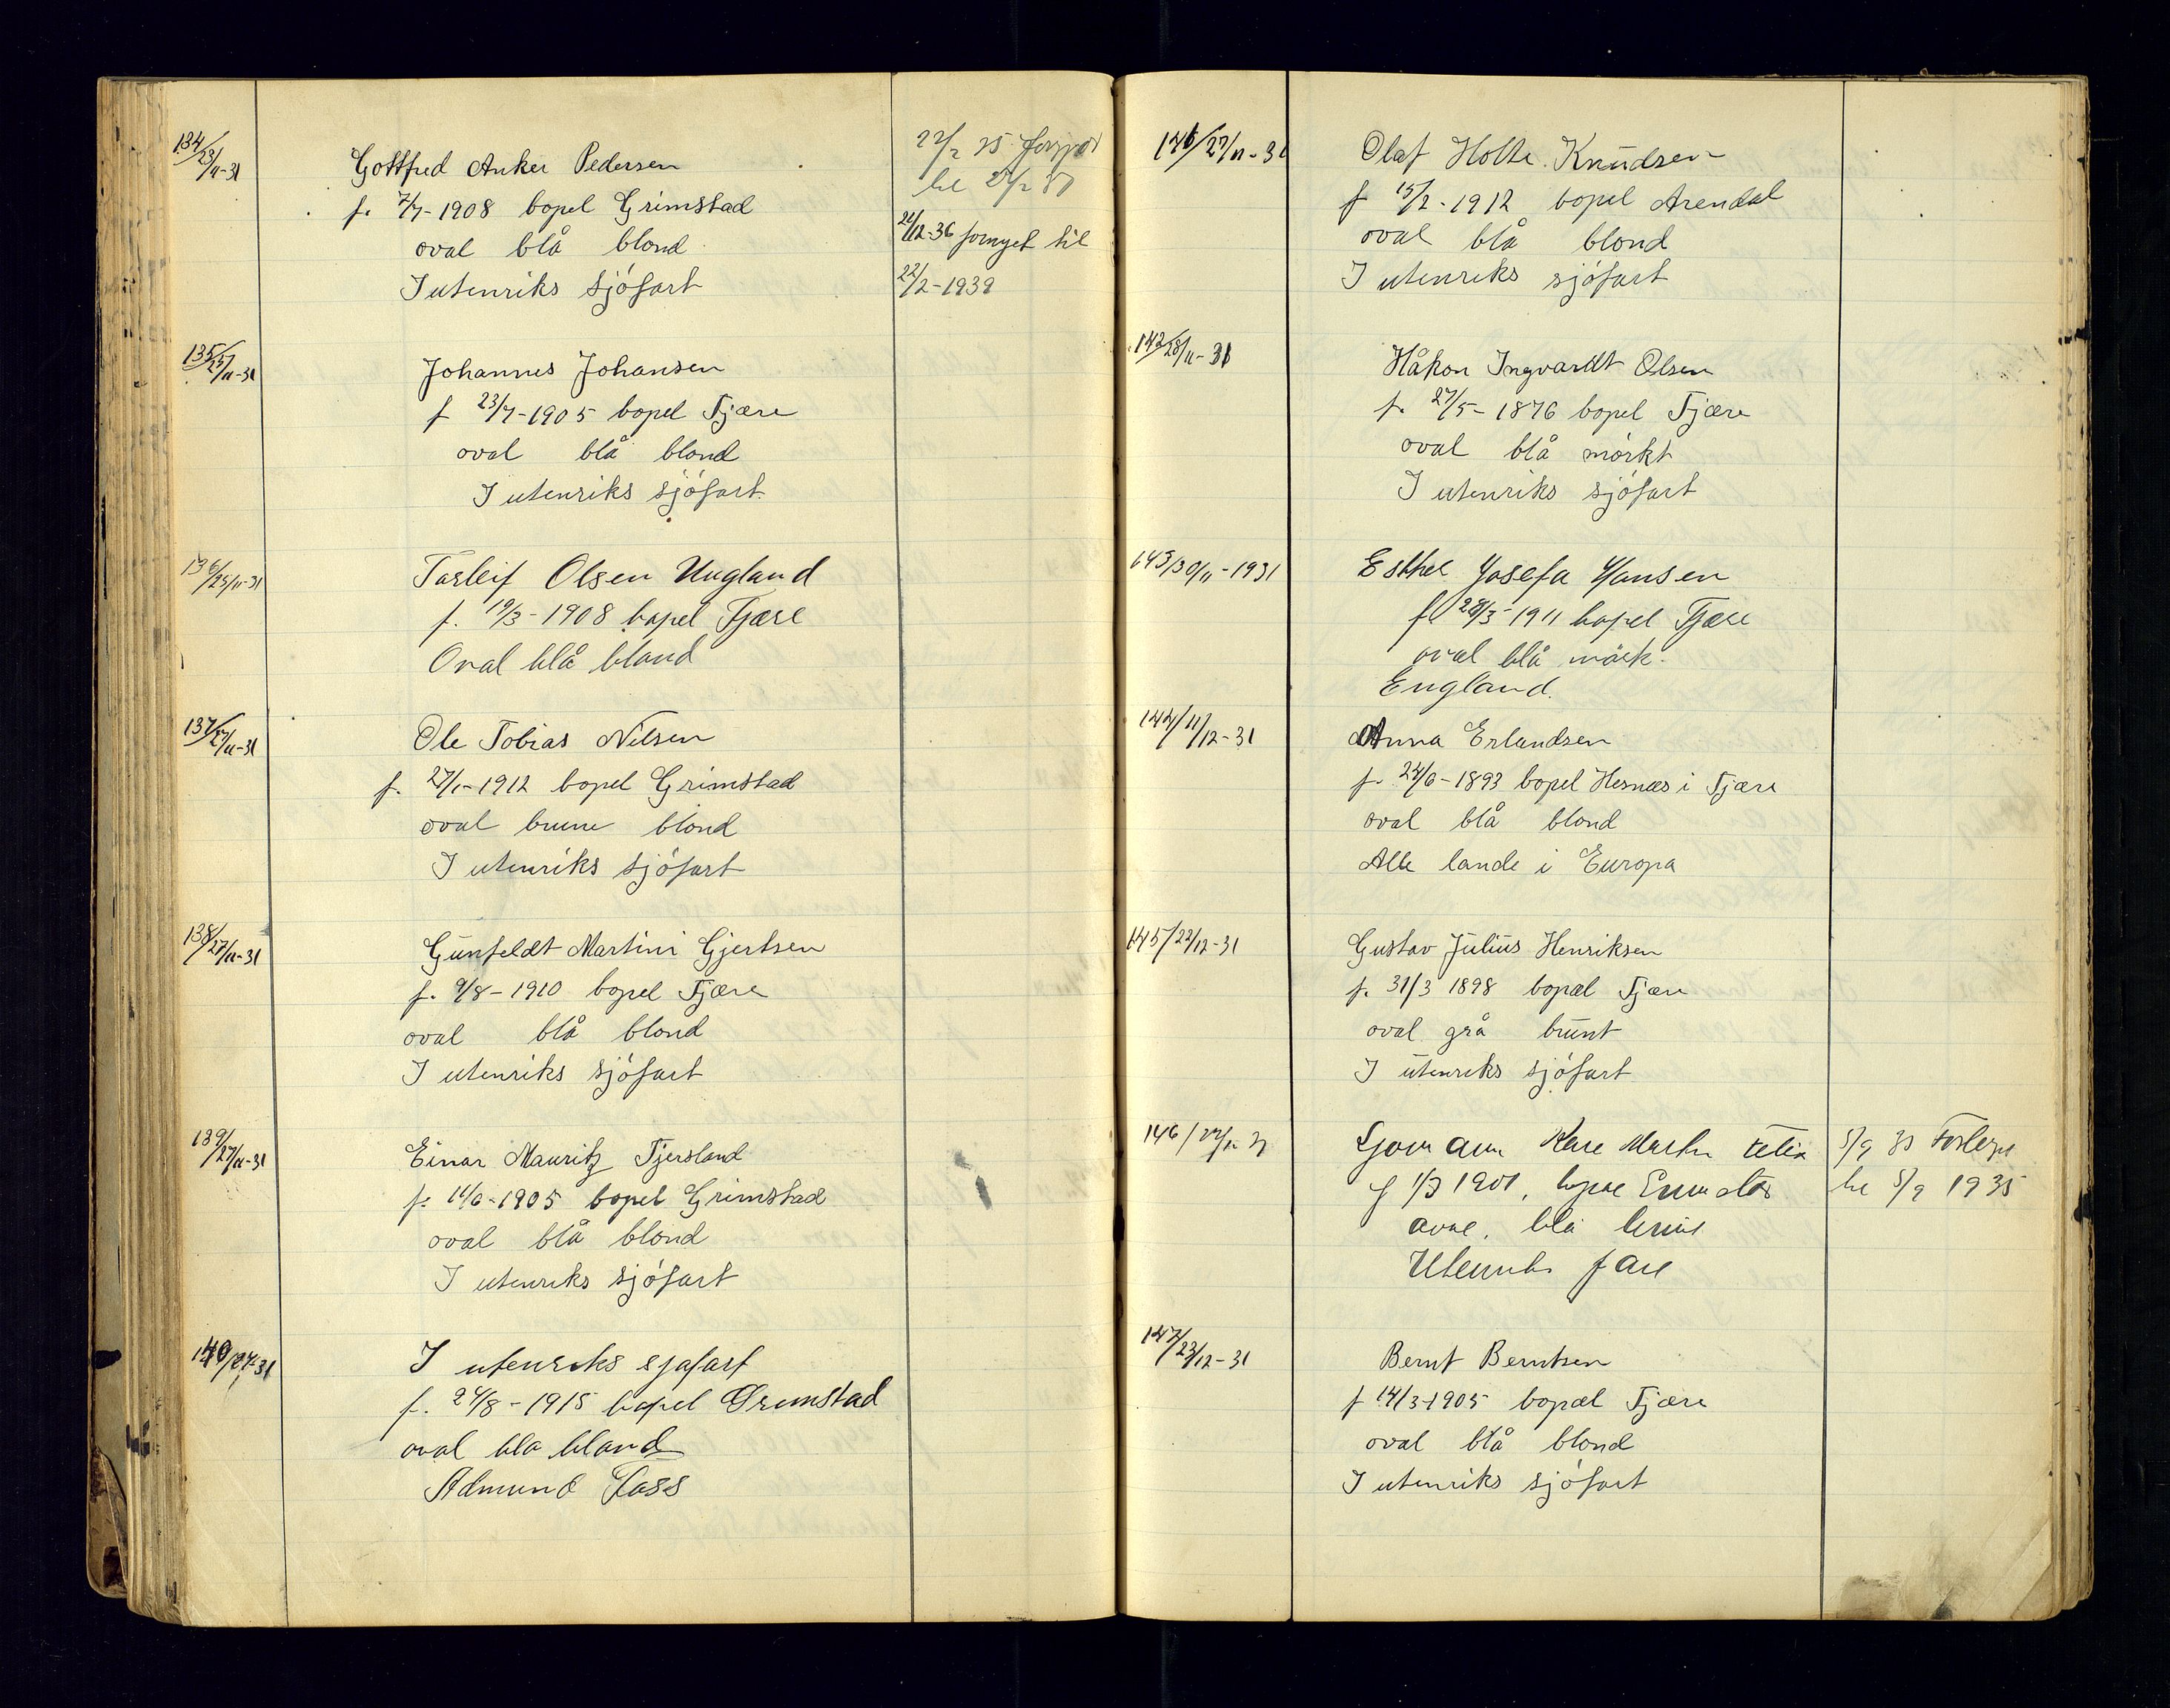 134/23/11-31
Gottfred Anker Pedersen
f. 7/7-1908 bopel Grimstad
oval blå blond
I utenriks sjöfart
22/2 35
22/12-36 fornyet til
22/2-1939
135/25/11-31
Johannes Johansen
f 23/7-1905 bopel Fjære
oval blå blond
I utenriks sjöfart.
136/25/11-31
Torleif Olsen Ugland
f. 19/3-1908 bopel Fjære
Oval blå blond
137/27/11-31
Ole Tobias Nilsen
f. 27/1-1912 bopel Grimstad
oval brune blond
I utenriks sjöfart
138/27/11-31
Gunfeldt Martini Gjertsen
f. 9/8-1910 bopel Fjære
oval blå blond
I utenriks sjöfart
139/27/11-31
Einar Mauritz Fjersland
f. 11/6-1905 bopel Grimstad
oval blå blond
I utenriks sjöfart
140/27-31
I utenriks sjofart
f. 24/8-1915 bopel Grimstad
oval bla blond
Admund
141/27/11-31
Olaf Holte Knudsen
f 15/2-1912 bopel Arendal
oval blå blond
I utenriks sjöfart
142/28/11-31
Håkon Ingvardt Olsen
f. 27/5-1876 bopel Fjære
oval blå mörkt
I utenriks sjöfart
143/30/11-1931
Esther Josefa Hansen
f 28/3-1911 bopel Fjære
oval blå mörk.
England.
144/11/12-31
Anna Erlandsen
f. 24/6-1893 bopel Hesnæs i Fjære
oval blå blond
Alle lande i Europa
145/22/12-31
Gustav Julius Henriksen
f. 31/3 1898 bopæl Fjære
oval grå brunt
I utenriks sjöfart
146/
Kåre Martin Felix
f 1/3 1901,
oval, blå
Utenriks fart
5/9 33
til 5/9 1935
147/23/12-31
Bernt Berntsen
f 14/3-1905 bopæl Fjære
oval blå blond
I utenriks sjöfart